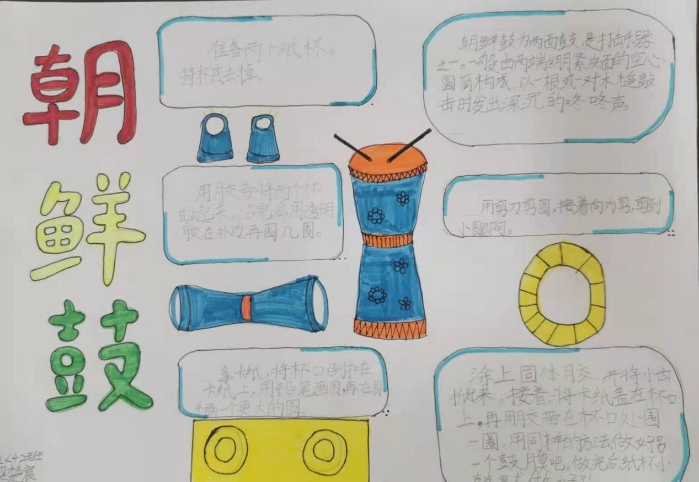 朝
鲜
鼓
准备两个纸杯。
将杯底去掉。
朝鲜鼓为两面鼓,是打击乐器
之一。一般由两端绷紧皮面的空心
圆筒构成,以一根或一对木槌敲
击时发出深沉的咚咚声。
用胶带将两个杯
用透明
胶在外边再围几圈。
用剪刀剪圆,接着向内剪,剪到
小圆
拿卡纸,将杯口倒扣在
卡纸上,用铅笔画圆,再在圆
画一个更大的圆
涂上固体胶,并将小齿
起来。接着,将卡纸盖在杯口
上,再用胶带在杯口处围
一圈,用同样的方法,做好另
一个鼓膜吧。做完后,纸杯小